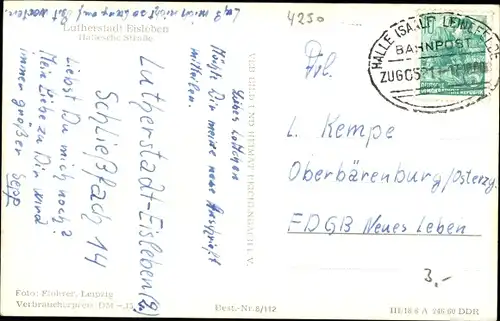 Lutherstadt Eisleben
Hallesche Straße
Laß mich nicht so lang auf Post warten!
4250
HALLE (SAALE)
BAHNPOST
ZUG
Liebes Lottchen
Möcht Dir meine neue Anschrift
mitteilen.
Lutherstadt-Eisleben
Schließfach 14
Liebst Du mich noch?
Meine Liebe zu Dir wird
immer größer Sepp
Frl.
L. Kempe
Oberbärenburg/Osterzg.
FDGB Neues Leben
3,-
VEB
Foto:
Verbraucherpreis DM
Best.-Nr. 8/112
A 246 60 DDR